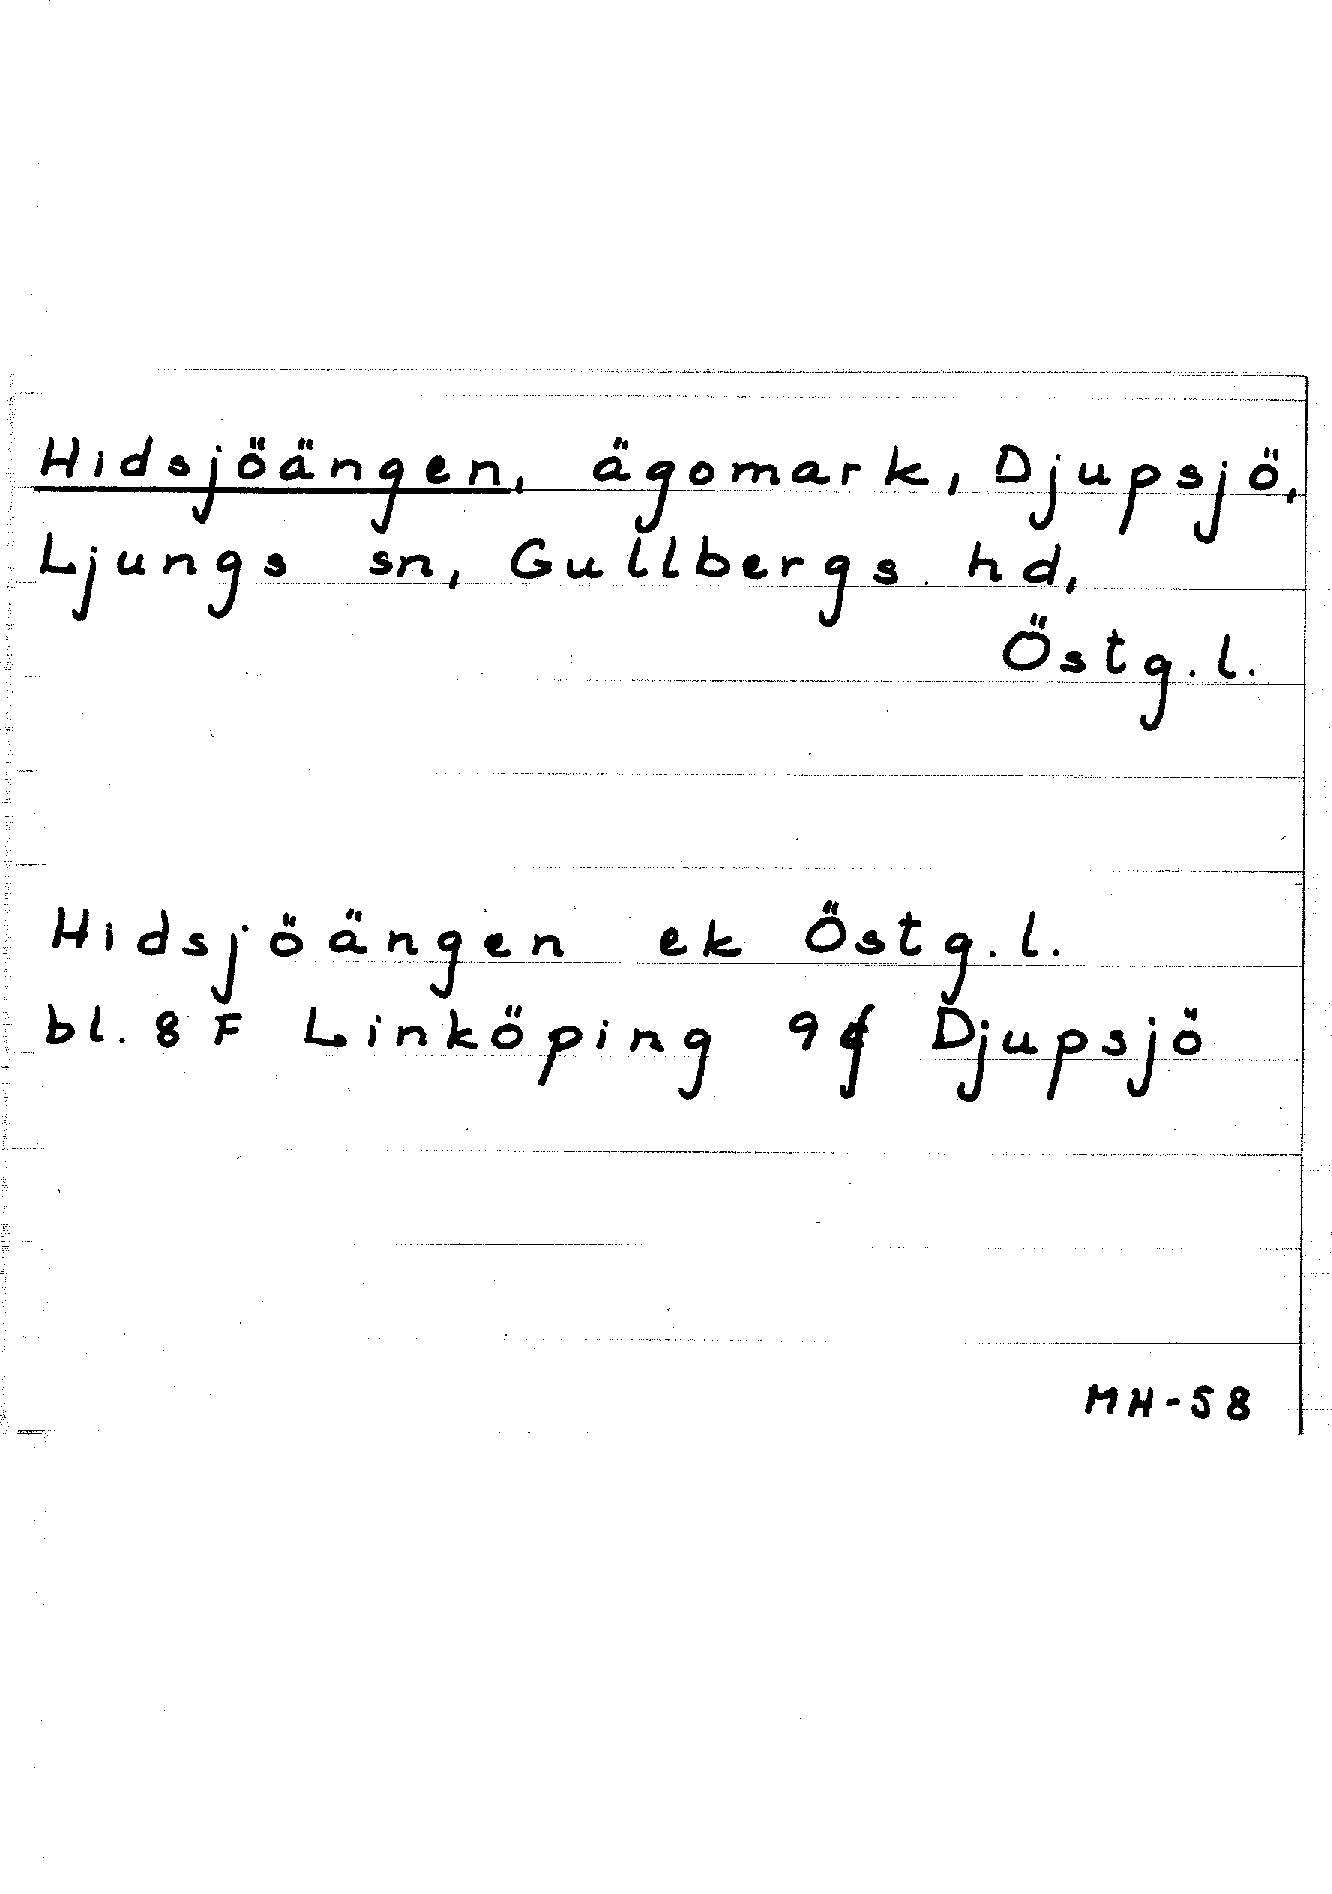 Hidsjöängen, ägomark, Djupsjö,
Ljungs sn, Gullbergs hd,
Östg.l.
Hidsjöängen ek Östg.l.
bl. 8 F Linköping 9f Djupsjö
MH-58